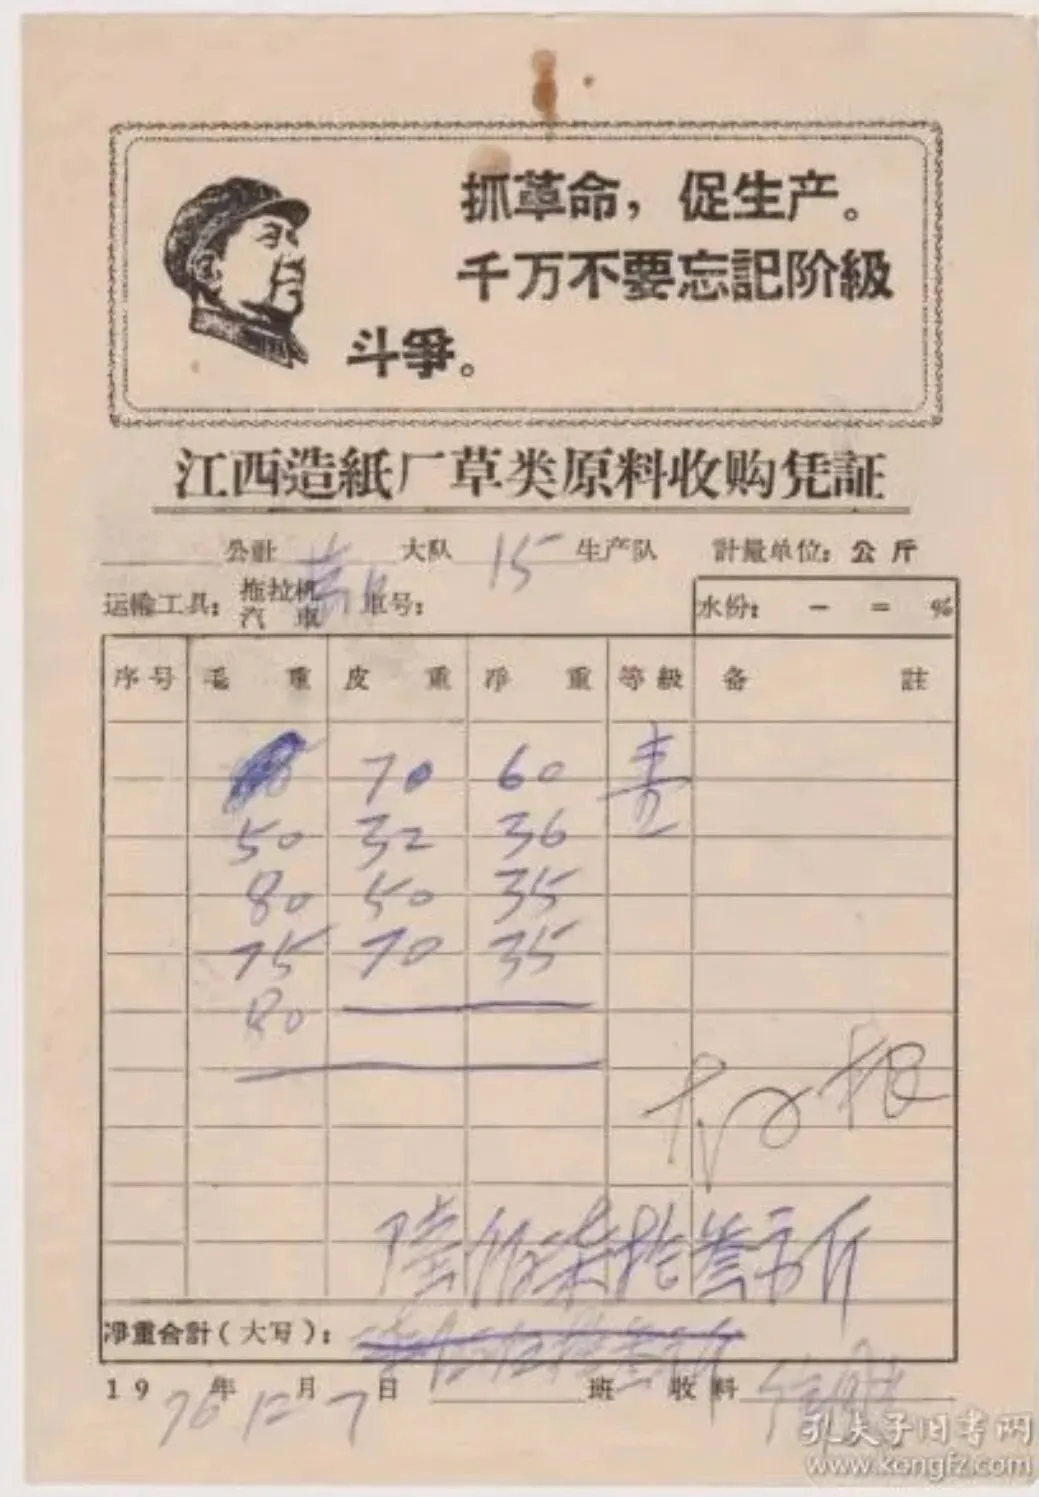 抓革命，促生产。
千万不要忘記阶級
斗爭。
江西造紙厂草类原料收购凭証
公社 大队 15 生产队 計量单位：公斤
运輸工具：拖拉机 汽車 車号： 水份： — = %
序号 毛重 皮重 凈重 等級 备註
70 60
50 32 36
80 50 35
75 70 35
80
陸佰柒拾叁市斤
凈重合計（大写）：
1976年12月7日 班 收料
孔夫子旧书网
www.kongfz.com